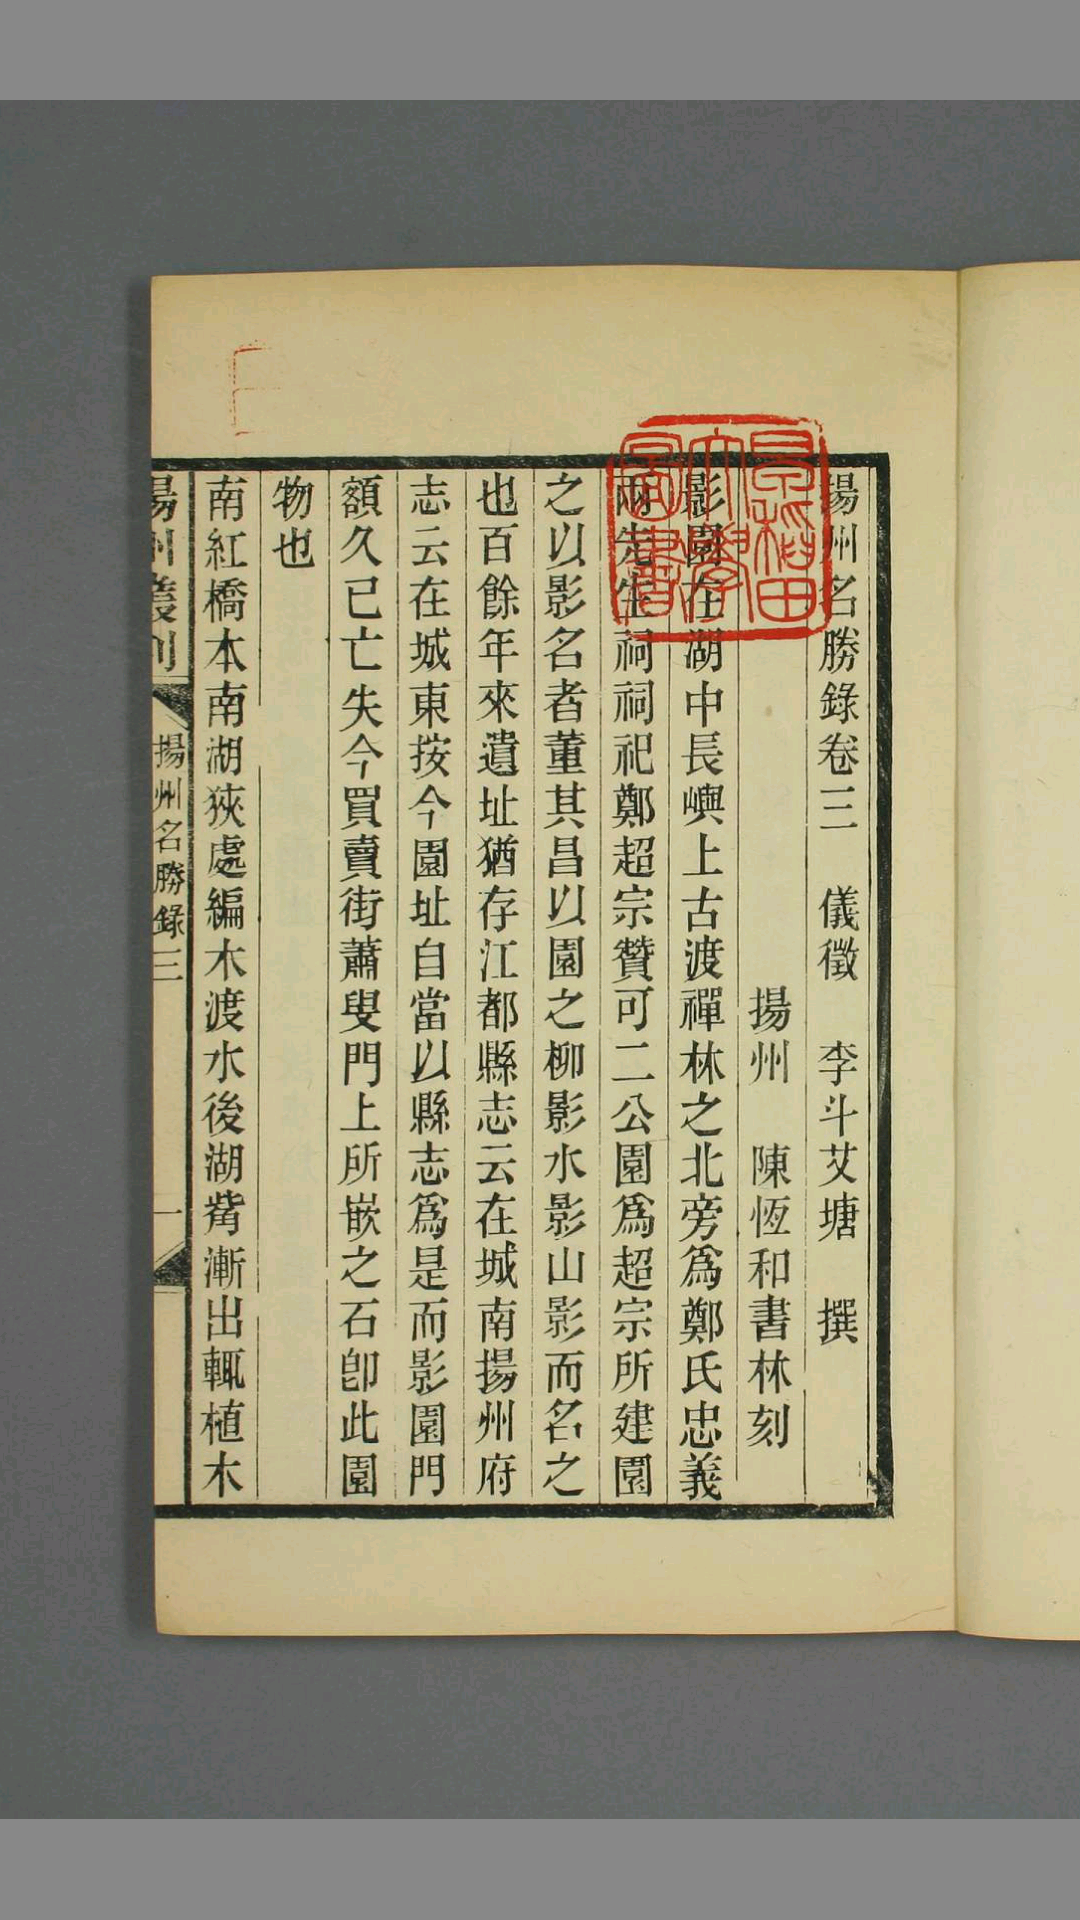 揚州名勝錄卷三　儀徵　李斗艾塘　撰
揚州　陳恆和書林刻
影園在湖中長嶼上古渡禪林之北旁為鄭氏忠義
兩先生祠祠祀鄭超宗贊可二公園為超宗所建園
之以影名者董其昌以園之柳影水影山影而名之
也百餘年來遺址猶存江都縣志云在城南揚州府
志云在城東按今園址自當以縣志為是而影園門
額久已亡失今買賣街蕭叟門上所嵌之石卽此園
物也
南紅橋本南湖狹處編木渡水後湖觜漸出輒植木
揚州叢刊　揚州名勝錄三　一
早稻田
大學
圖書